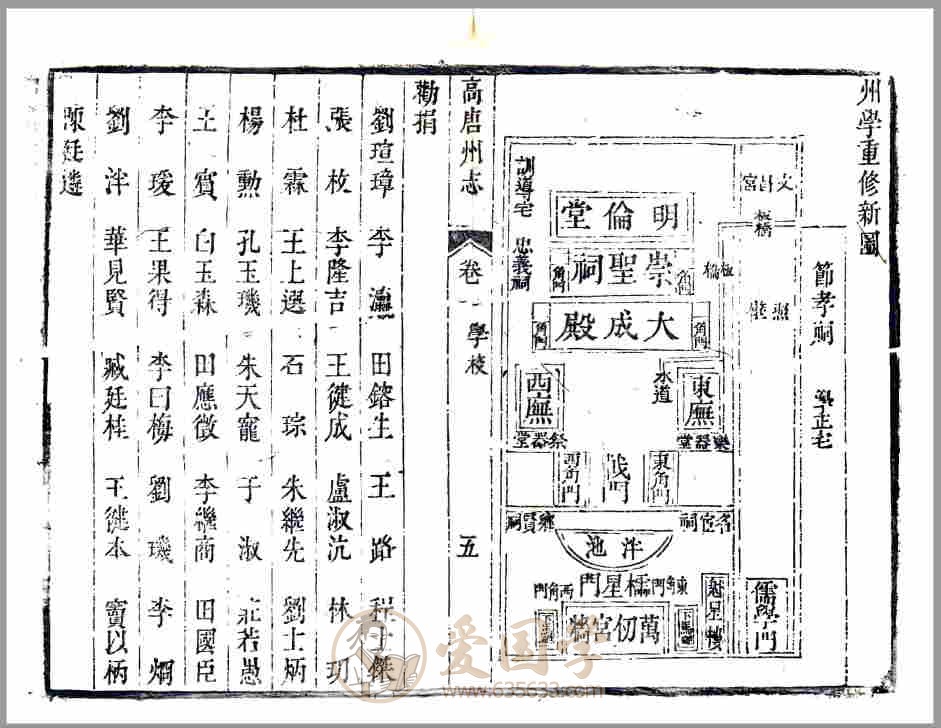 州學重修新圖
節孝祠
學正宅
文昌宮
板橋
板橋
照壁
訓導宅
忠義祠
明倫堂
角門
崇聖祠
角門
角門
大成殿
角門
東廡
水道
西廡
樂器堂
祭器堂
東角門
戟門
西角門
名宦祠
鄉賢祠
泮池
東角門
櫺星門
西角門
儒學門
魁星樓
下馬
萬仞宮牆
下馬
高唐州志
卷一
學校
五
勸捐
劉瑄璋 李 田鎔生 王路 程士傑
張枚 李隆吉 王健成 盧淑沆 林玥
杜霖 王上選 石琮 朱繼先 劉士炳
楊勳 孔玉璣 朱天寵 于淑 莊若愚
王賓 白玉森 田應徵 李繼商 田國臣
李瑗 王果得 李曰梅 劉璣 李烱
劉泮 華見賢 臧廷桂 王健本 竇以柄
陳廷遴
爱国学
www.635633.com